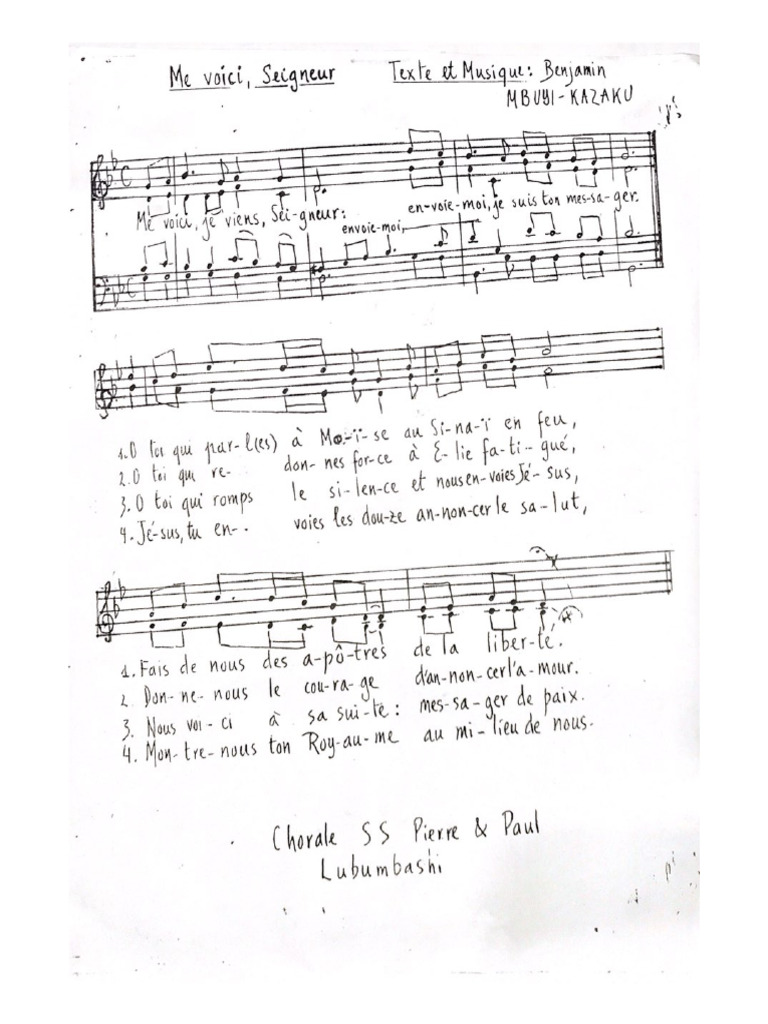 Me voici, Seigneur Texte et Musique: Benjamin
MBUYI-KAZAKU
Me voici, je viens, Sei-gneur: en-voie-moi, je suis ton mes-sa-ger.
envoie-moi,
1. O toi qui par-l(es) à Mo-ï-se au Si-na-ï en feu,
2. O toi qui re- don-nes for-ce à E-lie fa-ti-gué,
3. O toi qui romps le si-len-ce et nous en-voies Jé-sus,
4. Jé-sus, tu en-. voies les dou-ze an-non-cer le sa-lut,
1. Fais de nous des a-pô-tres de la liber-té.
2. Don-ne-nous le cou-ra-ge d'an-non-cer l'a-mour.
3. Nous voi-ci à sa sui-te: mes-sa-ger de paix.
4. Mon-tre-nous ton Roy-au-me au mi-lieu de nous.
Chorale SS Pierre & Paul
Lubumbashi